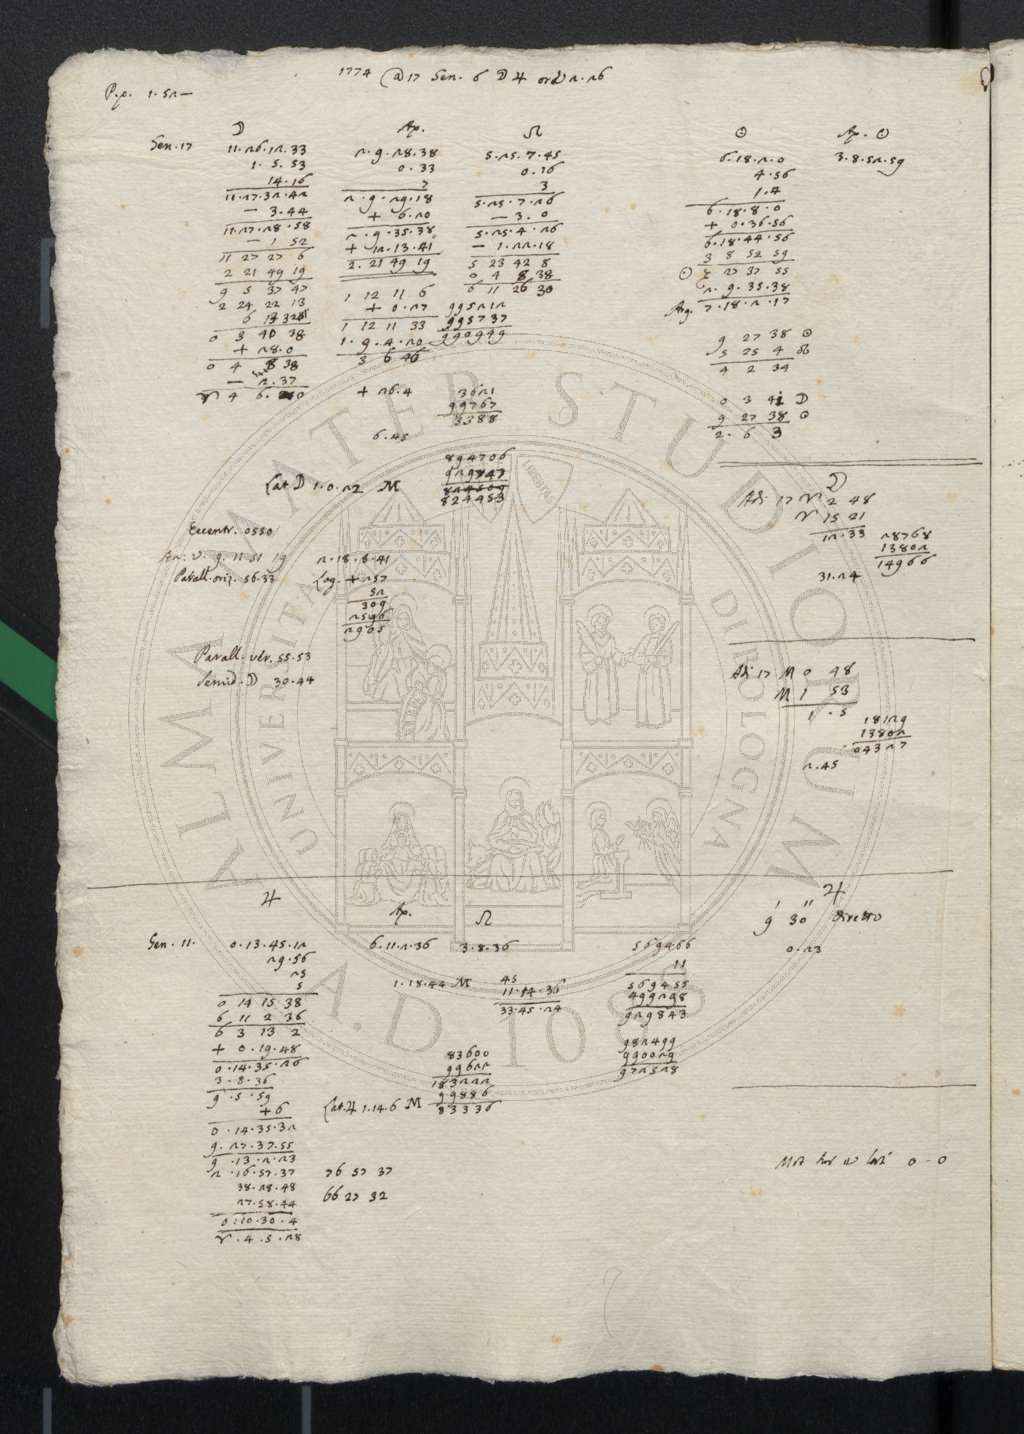 1774 @ 17 Gen. 6 ☽ ♃ ord. 2.26
P.p. 1.52—
☽ Ap. ☊ ☉ Ap. ☉
Gen. 17 11.26.12.33 2.9.28.38 5.25.7.45 6.18.2.0 3.8.52.59
1.5.53 0.33 0.16 4.56
14.16 7 3 1.4
11.27.32.42 2.9.29.18 5.25.7.26 6.18.8.0
— 3.44 + 6.20 — 3.0 + 0.36.56
11.27.28.58 2.9.35.38 5.25.4.26 6.18.44.56
— 1 52 + 12.13.41 — 1.22.18 3 8 52 59
11 27 27 6 2.21 49 19 5 23 42 8 ☉ 9 27 37 55
2 21 49 19 0 4 8 38 2.9.35.38
9 5 37 47 1 12 11 6 6 11 26 30 Arg. 7.18.2.17
2 24 22 13 + 0.27 995212
1 12 11 33 995737
0 3 40 38 1.9.4.20 990949 9 27 38 ☉
+ 28.0 3 6 46 5 25 4 ☊
0 4 8 38 4 2 34
— 2.37
♈ 4 6. + 26.4 3621 0 3 41 ☽
99767 9 27 38 ☉
3388 2. 6 3
6.45
894706
929747 ☽
Lat ☽ 1.0.22 M 824509 Adi 17 ♈ 2 48
824453 ♈ 15 21
Eccentr. 0550 12.33 28768
An. v. 9.11 51 19 2.18.8.41 13802
Parall. oriz. 56.33 Log. + 257 14966
52 31.24
309
2596
2905
Parall. ver. 55.53 Adi 17 M 0 48
Semid. ☽ 30.44 M 1 53
1.5
18129
13802
04327
2.45
♃ ♃
Ap. ☊ 9' 30'' Diretto
Gen. 11. 0.13.45.12 6.11.2.36 3.8.36 569466 0.23
29.56 11
25 1.18.44 M 45 569455
5 11.14.36 499298
0 14 15 38 33.45.24 929843
6 11 2 36
6 3 13 2
+ 0.19.48 982499
0.14.35.26 83600 990029
3.8.36 99622 972528
9.5.59 183222
+6 Lat ♃ 1.14.6 M 99886
0.14.35.32 83336
9.27.37.55
9.13.2.23
2.16.57.37 76 57 37
38.28.48 66 27 32
27.58.44
0.10.30.4
♈.4.5.28
0 - 0
ALMA MATER STUDIORUM
UNIVERSITÀ DI BOLOGNA
A.D. 1088